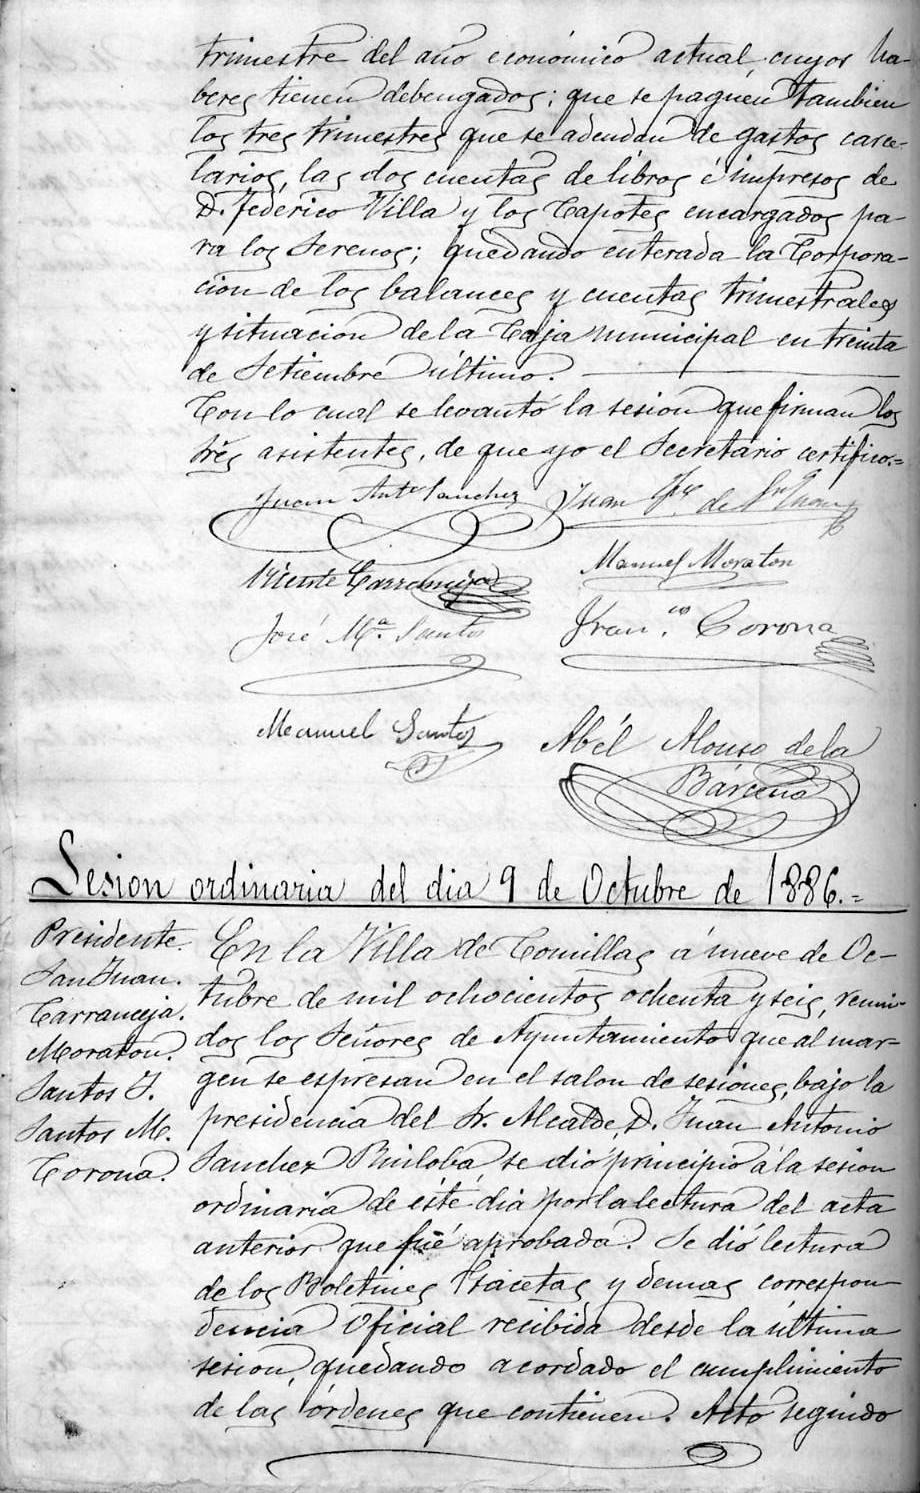 trimestre del año económico actual, cuyos ha-
beres tienen debengados; que se paguen tambien
los tres trimestres que se adeudan de gastos carce-
larios, las dos cuentas de libros é impresos de
D. Federico Villa y los Capotes encargados pa-
ra los Serenos; quedando enterada la Corpora-
cion de los balances y cuentas trimestrales
y situacion de la Caja municipal en treinta
de Setiembre último.
Con lo cual se levantó la sesion que firman los
tres asistentes, de que yo el Secretario certifico.=
Juan Antº Sanchez
Juan de Sn Juan
Vicente Carranceja
Manuel Moraton
José Mª. Santos
Franco. Corona
Manuel Santos
Abél Alonso de la
Bárcena
Sesion ordinaria del dia 9 de Octubre de 1886.=
Presidente
San Juan.
Carranceja.
Moraton.
Santos J.
Santos M.
Corona.
En la Villa de Comillas á nueve de Oc-
tubre de mil ochocientos ochenta y seis, reuni-
dos los Señores de Ayuntamiento que al mar-
gen se espresan en el salon de sesiones, bajo la
presidencia del Sr. Alcalde, D. Juan Antonio
Sanchez Ruiloba se dió principio á la sesion
ordinaria de este dia por la lectura del acta
anterior que fué aprobada. Se dió lectura
de los Boletines Gacetas y demas correspon
dencia Oficial recibida desde la última
sesion, quedando acordado el cumplimiento
de las órdenes que contienen. Acto seguido